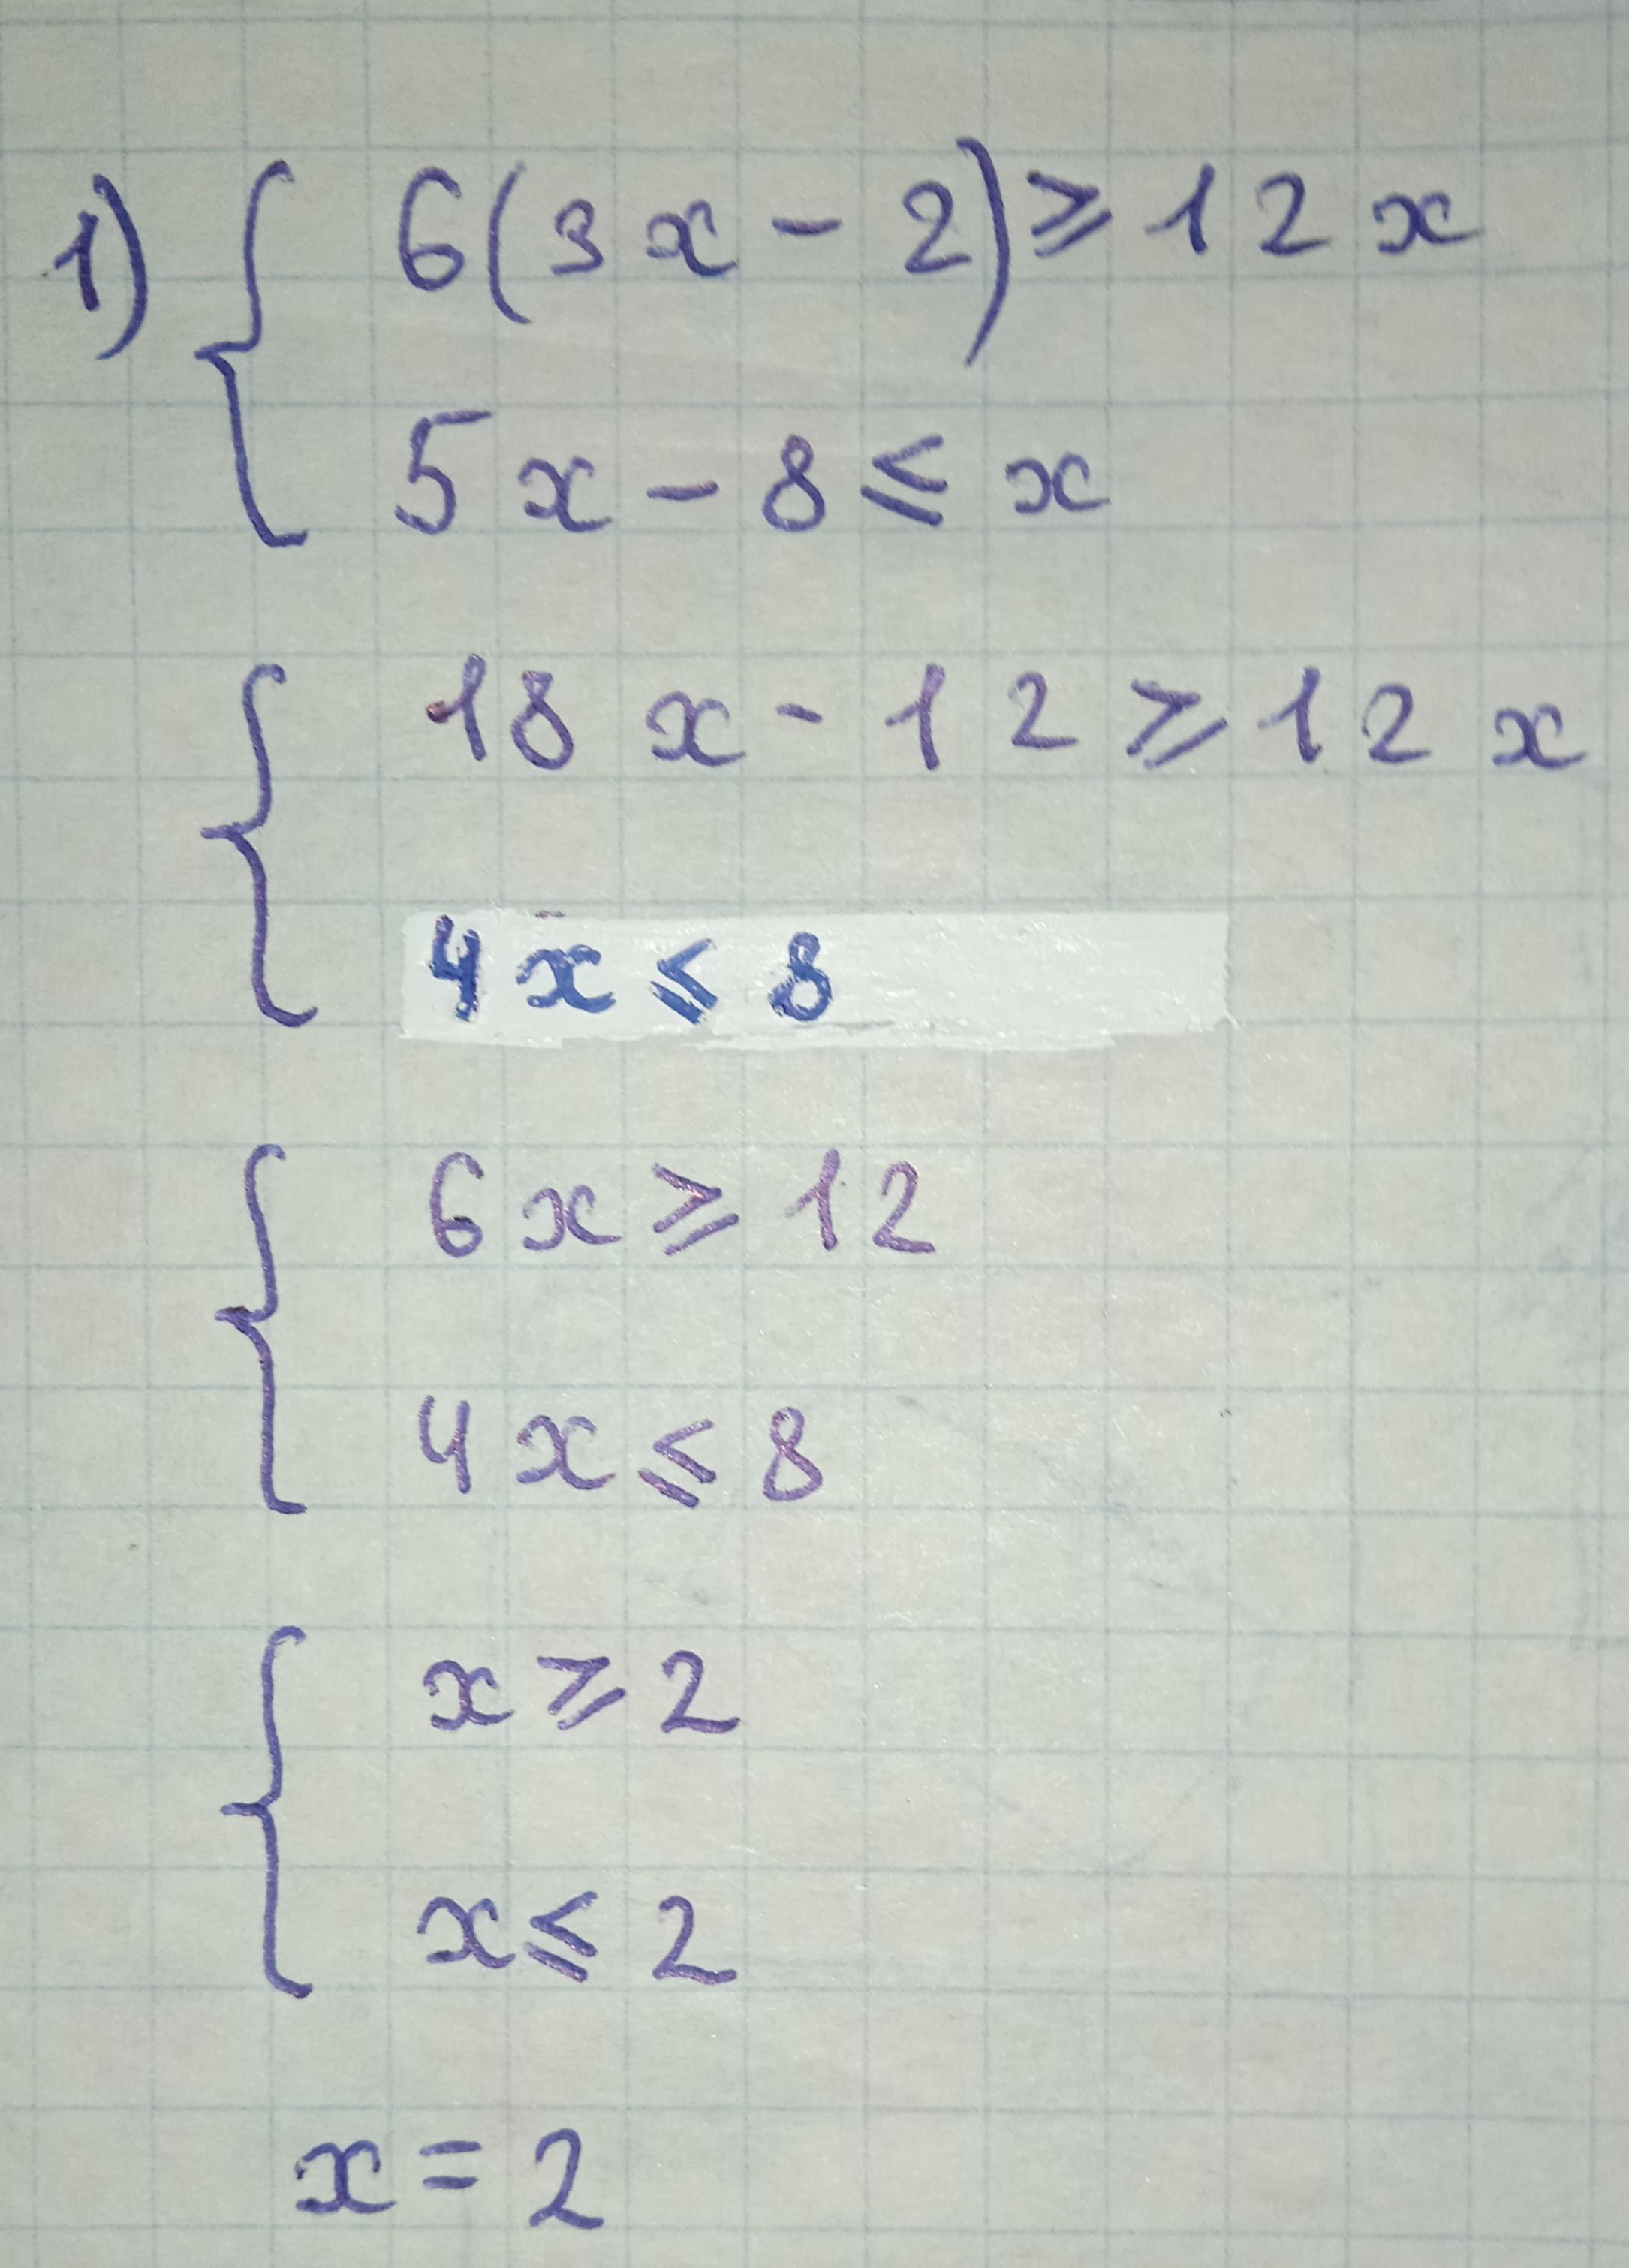 1) { 6(3x - 2) ⩾ 12x
5x - 8 ⩽ x
{ 18x - 12 ⩾ 12x
4x ⩽ 8
{ 6x ⩾ 12
4x ⩽ 8
{ x ⩾ 2
x ⩽ 2
x = 2